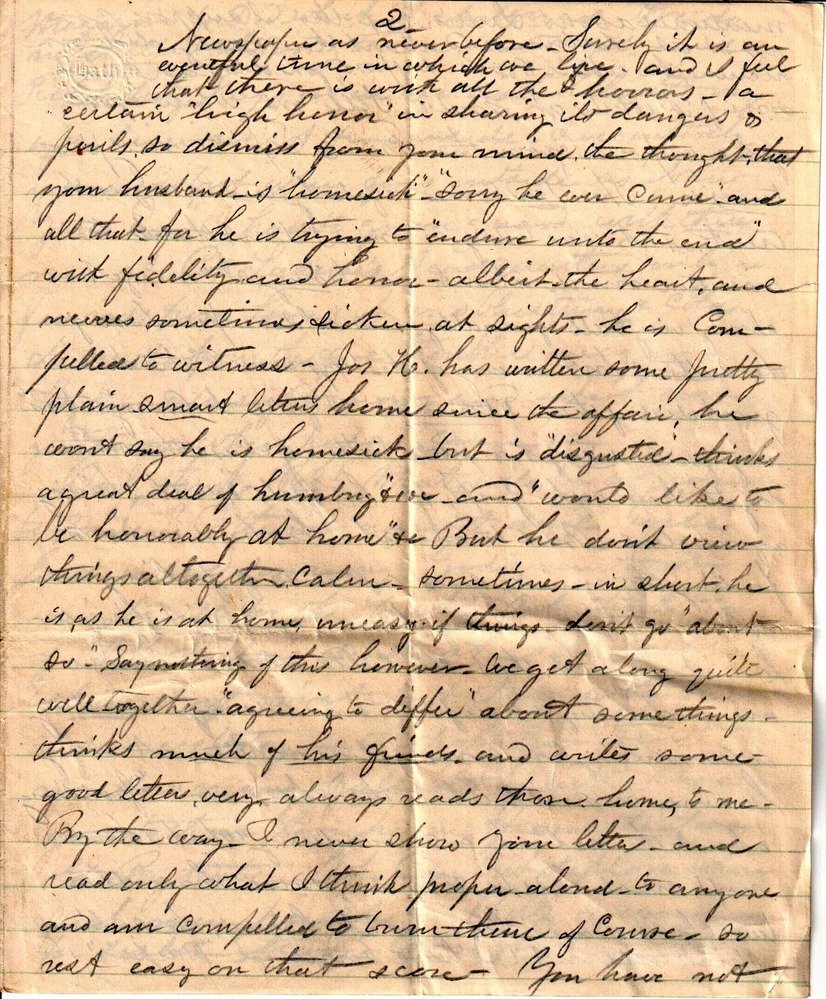 2
Newspaper as never before - Surely it is an
eventful time in which we live - and I feel
Bath
that there is with all the horrors - a
certain "high honor" in sharing its dangers &
perils, so dismiss from your mind, the thought, that
your husband is "homesick" - "sorry he ever came" and
all that - for he is trying to "endure unto the end"
with fidelity and honor - albeit the heart, and
nerves sometimes sicken at sights - he is Com-
pelled to witness - Jos H. has written some pretty
plain smart letters home since the affair, he
wont say he is homesick but is "disgusted" - thinks
a great deal of humbug "&c - and "would like to
be honorably at home" &c But he don't view
things altogether, Calm - sometimes - in short, he
is, as he is at home, uneasy if things don't go "about
so" - Say nothing of this however - We get along quite
well together - "agreeing to differ" about some things -
thinks much of his friends, and writes some
good letters, very, always reads those home, to me -
By the way - I never show your letters - and
read only what I think proper - aloud - to anyone
and am Compelled to burn them of Course - so
rest easy on that score - You have not